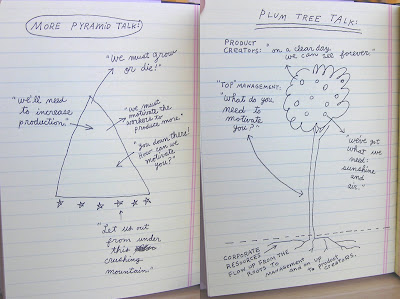 MORE PYRAMID TALK:
"we must grow
or die!"
"we'll need
to increase
production."
"we must
motivate the
workers to
produce more."
"you down there!
How can we
motivate
you?"
"Let us out
from under
this
crushing
mountain."
PLUM TREE TALK:
PRODUCT
CREATORS: "on a clear day
we can see forever."
"TOP" MANAGEMENT:
"what do you
need to
motivate
you?"
"we've got
what we
need:
sunshine
and
air."
CORPORATE
RESOURCES
FLOW UP FROM THE
ROOTS TO MANAGEMENT
and on up
to PRODUCT
CREATORS.